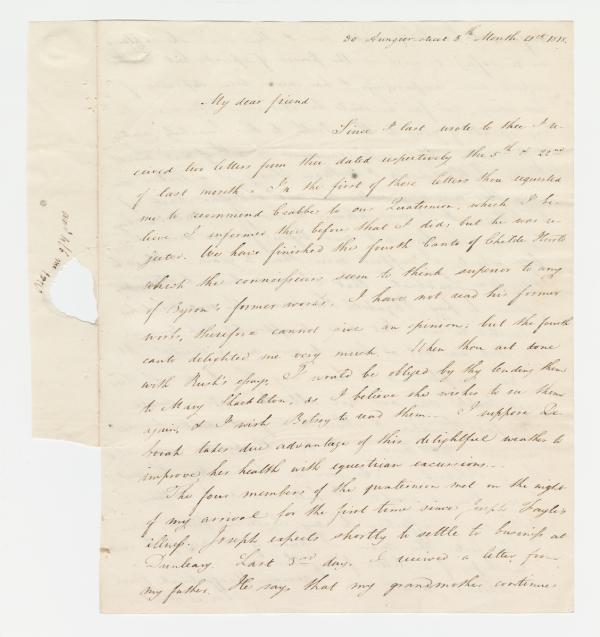 30 Aungier street 8th Month 1818.
My dear friend
Since I last wrote to thee I re-
ceived two letters from thee dated respectively the 5th & 22nd
of last month. In the first of those letters thou requested
me to recommend Crabbe to our Quaternion, which I be-
lieve I informed thee before that I did, but he was re-
jected. We have finished the fourth Canto of Childe Harold
which the connoisseurs seem to think superior to any
of Byron's former works. I have not read his former
works, therefore cannot give an opinion; but the fourth
canto delighted me very much. When thou art done
with Rush's essays, I would be obliged by thy lending them
to Mary Shackleton, as I believe she wishes to see them
again, & I wish Betsey to read them. I suppose De-
borah takes due advantage of this delightful weather to
improve her health with equestrian excursions...
The four members of the quaternion met on the night
of my arrival for the first time since Joseph Fayle's
illness. Joseph expects shortly to settle to business at
Dunleary. Last 3rd day, I received a letter from
my father. He says that my grandmother continues